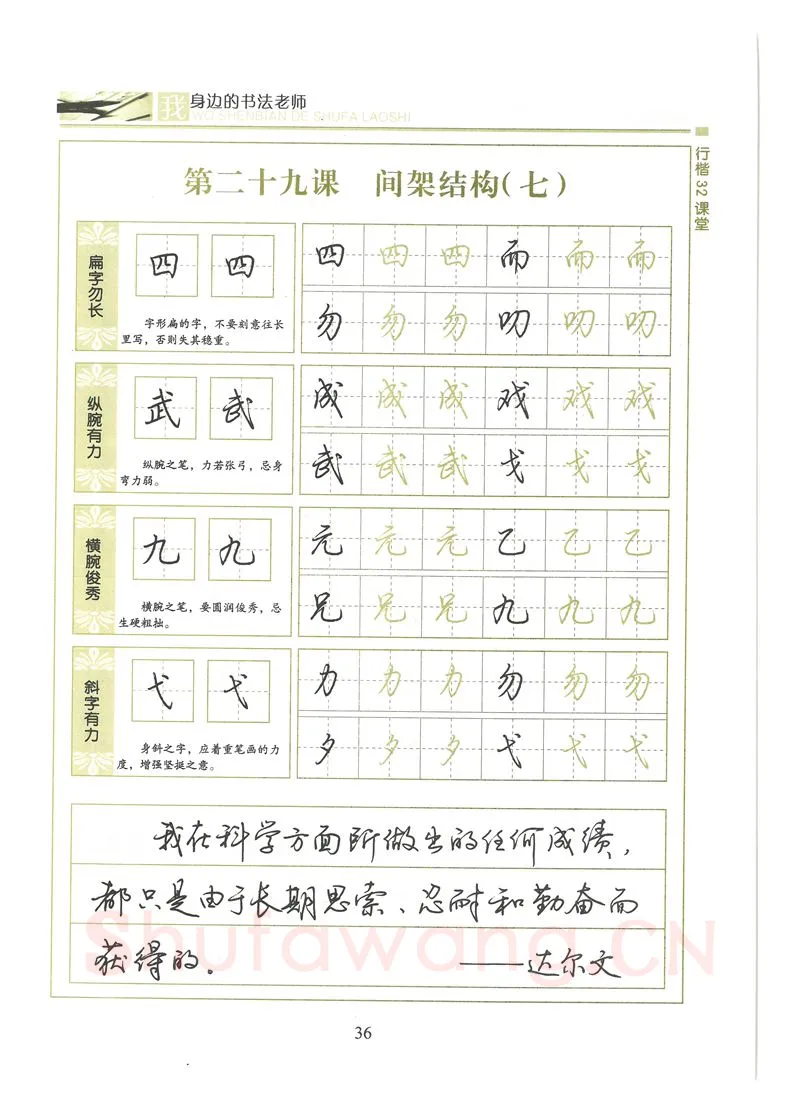 我身边的书法老师
WO SHENBIAN DE SHUFA LAOSHI
行楷32课堂
第二十九课 间架结构(七)
扁字勿长
四 四
字形扁的字，不要刻意往长
里写，否则失其稳重。
四 四 四 而 而 而
勿 勿 勿 叨 叨 叨
纵腕有力
武 武
纵腕之笔，力若张弓，忌身
弯力弱。
成 成 成 戏 戏 戏
武 武 武 戈 戈 戈
横腕俊秀
九 九
横腕之笔，要圆润俊秀，忌
生硬粗拙。
元 元 元 乙 乙 乙
兄 兄 兄 九 九 九
斜字有力
弋 弋
身斜之字，应着重笔画的力
度，增强坚挺之意。
力 力 力 勿 勿 勿
夕 夕 夕 弋 弋 弋
我在科学方面所做出的任何成绩，
都只是由于长期思索、忍耐和勤奋而
获得的。 ——达尔文
Shufawang.CN
36